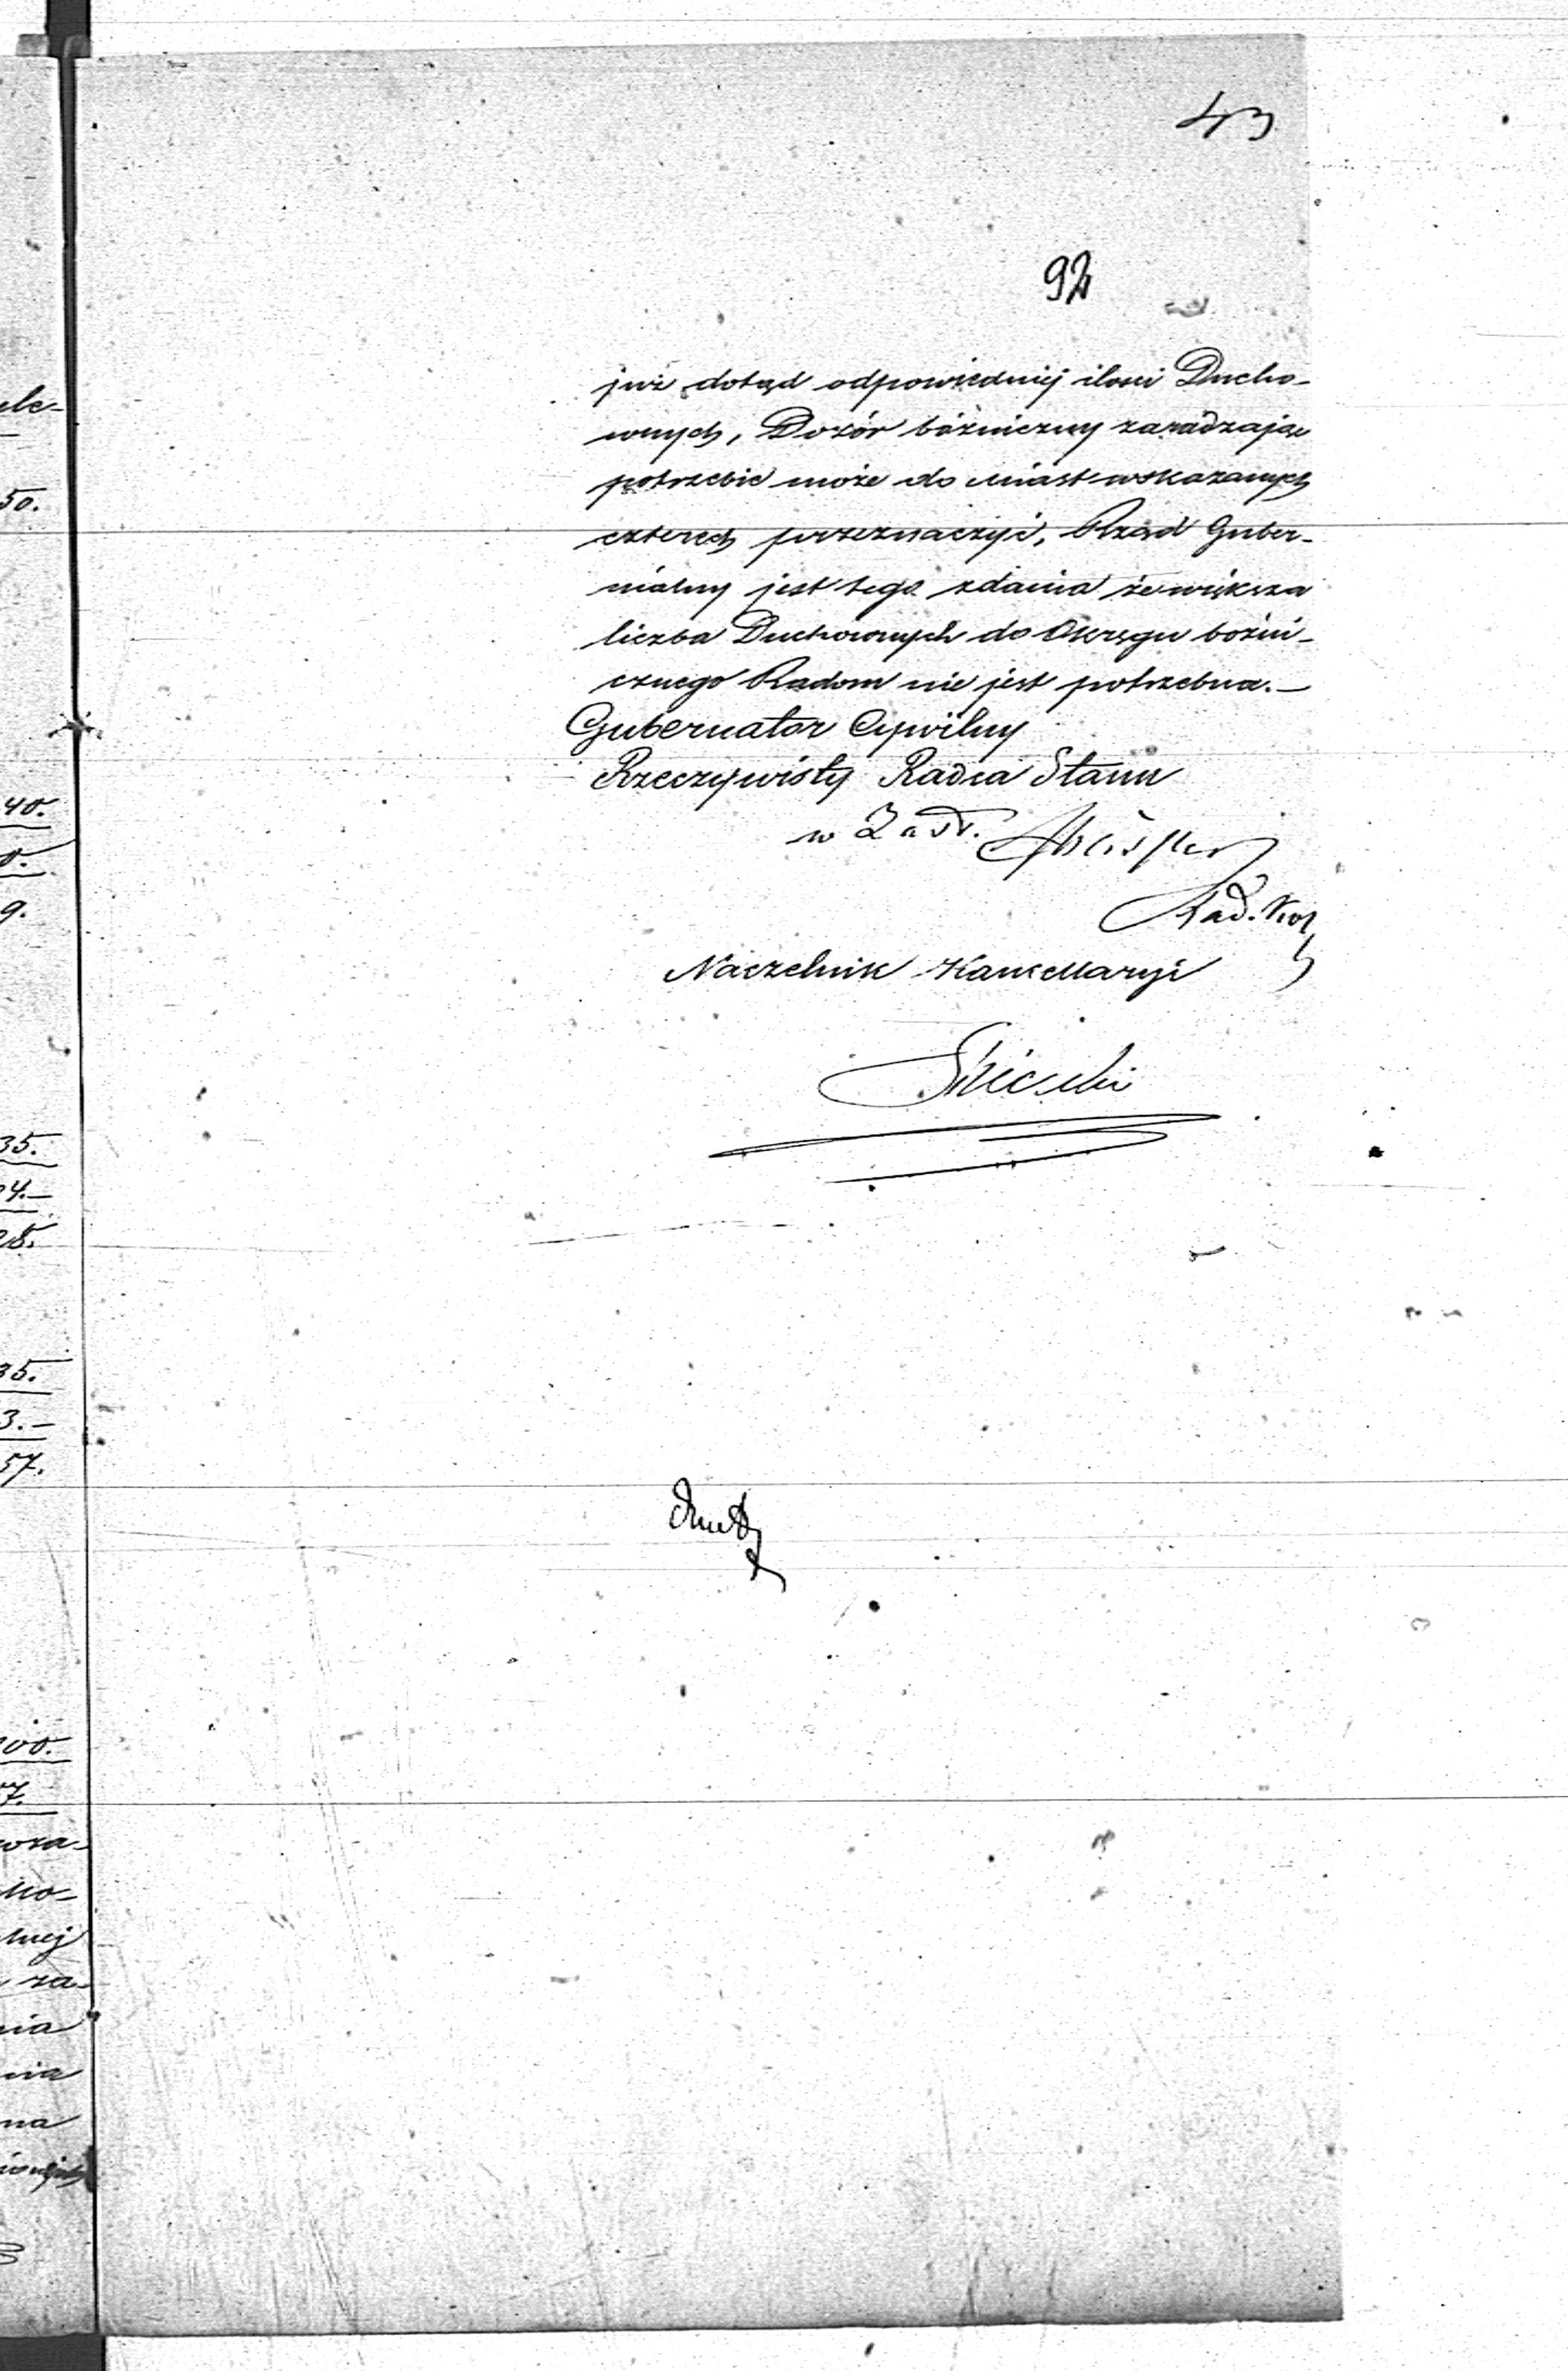 43
92
już dotąd odpowiedniej ilości Ducho-
wnych, Dozór bóżniczny zaradzając
potrzebie może do miast wskazanych
czterech przeznaczyć, Rząd Guber-
nialny jest tego zdania że większa
liczba Duchownych do Okręgu bożni-
cznego Radom nie jest potrzebna.—
Gubernator Cywilny
Rzeczywisty Radca Stanu
w Zast.
Rad.
Naczelnik Kancellaryi
50.
40.
0.
9.
35.
4.—
35.
3.—
57.
00.
7.
za-
nia
nia
na